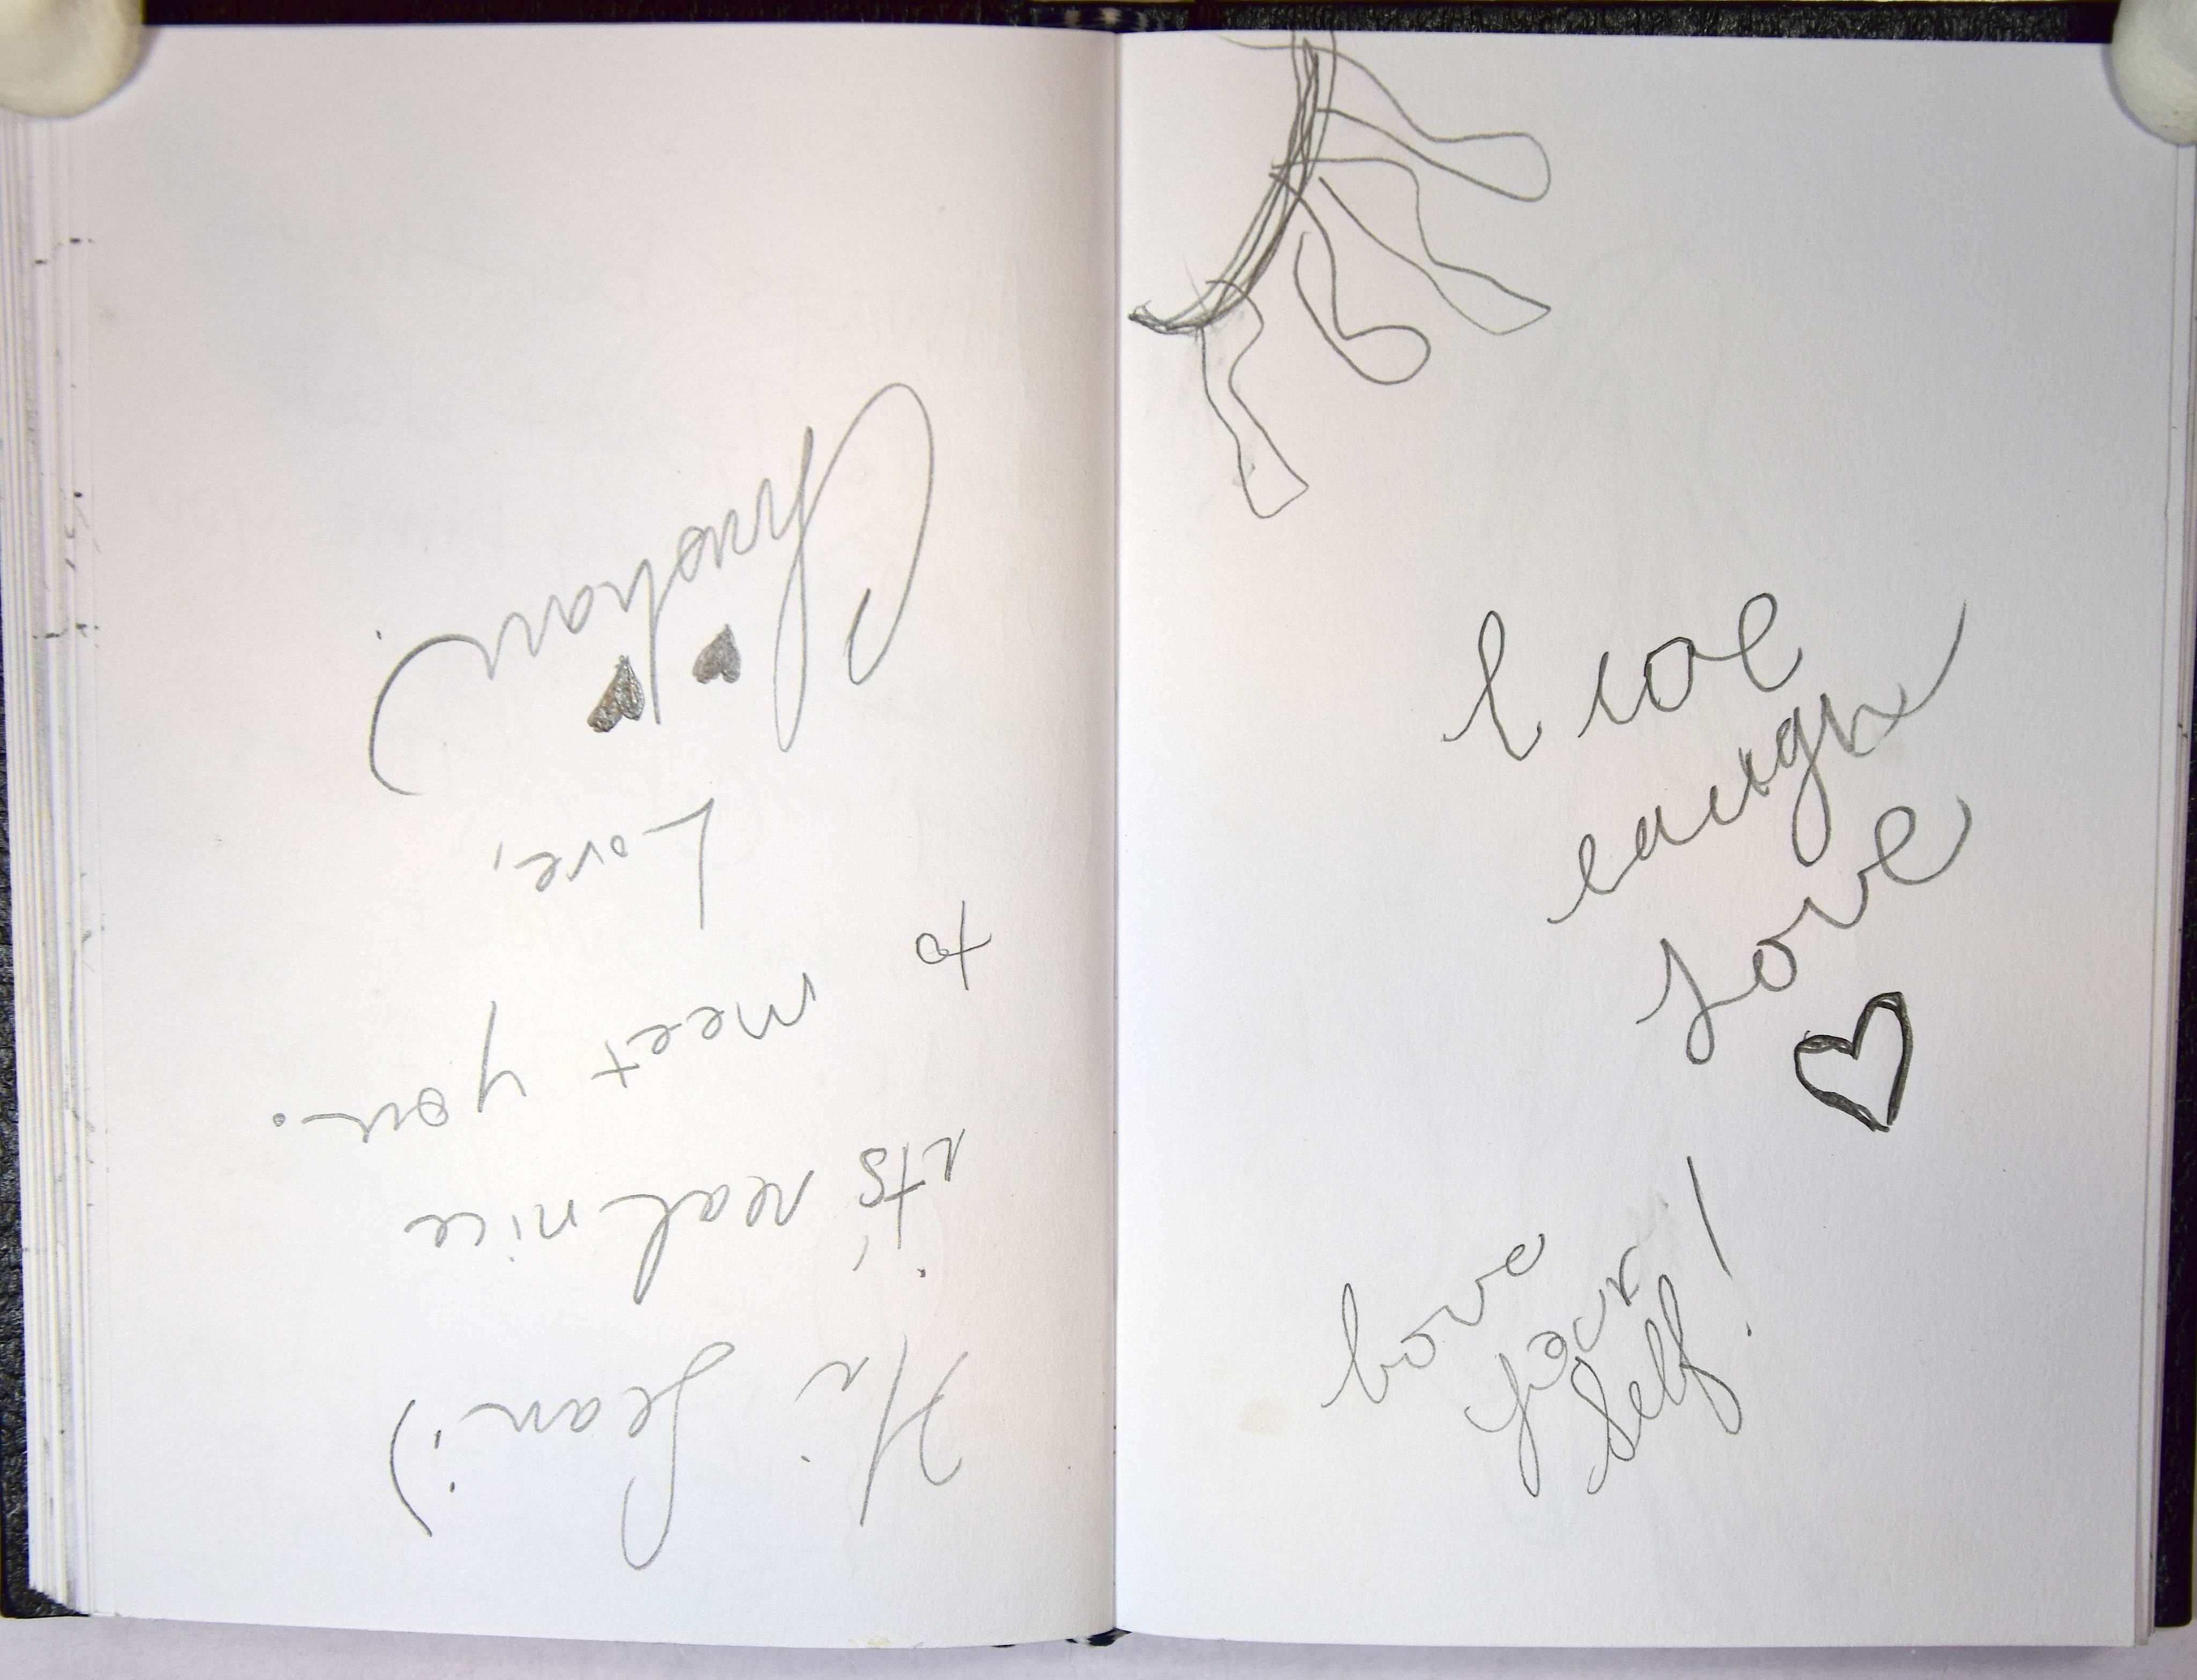 Hi Sean :)
it's real nice
to meet you.
Love,
Christian
live
laugh
love
love
your
self!